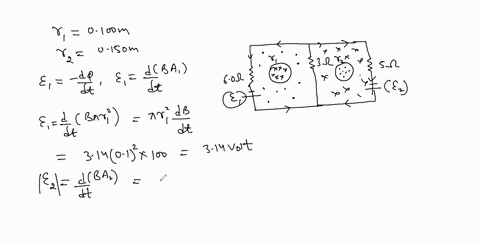 r₁ = 0.100m
r₂ = 0.150m
ε₁ = -dφ/dt, ε₁ = d/dt(BA₁)
ε₁ = d/dt(Bπr₁²) = πr₁² dB/dt
= 3.14(0.1)² × 100 = 3.14 volt
|ε₂| = d/dt(BA₂) =
r₁
r₂
6.0Ω
3Ω
5Ω
ε₁
(ε₂)